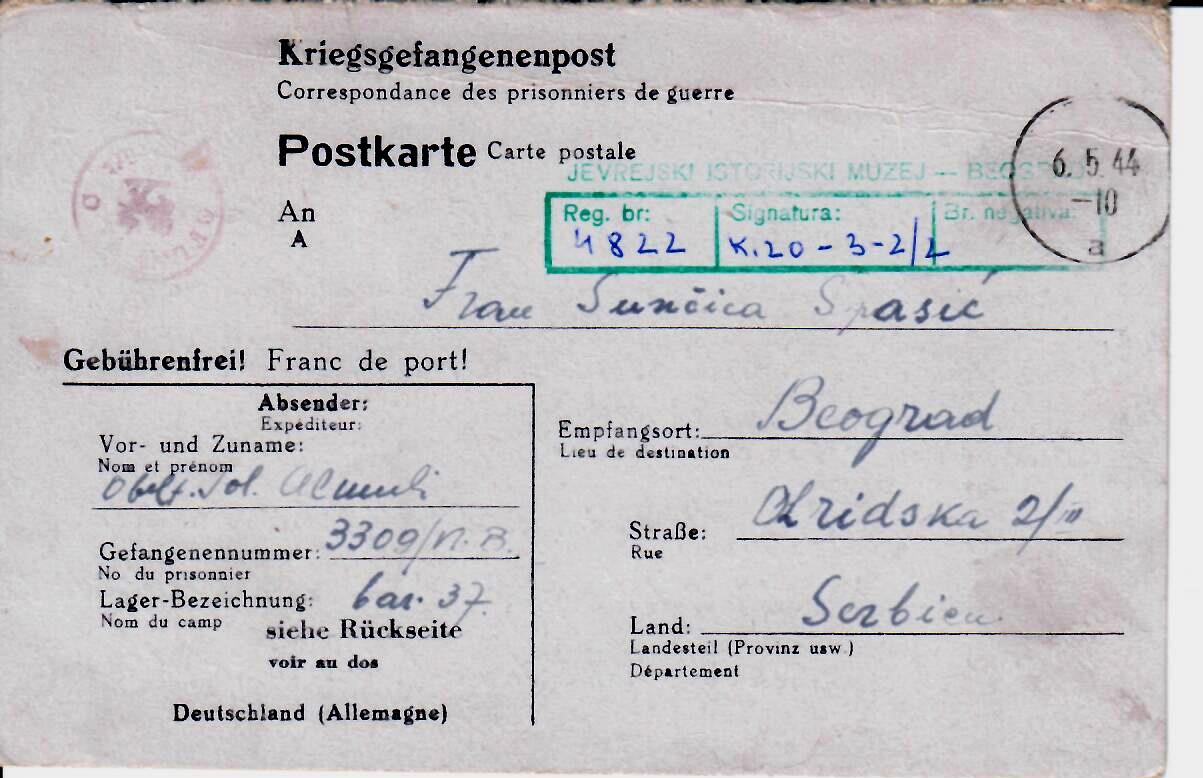 Kriegsgefangenenpost
Correspondance des prisonniers de guerre
Postkarte Carte postale
JEVREJSKI ISTORIJSKI MUZEJ — BEOGRAD
6.5.44
–10
a
An
A
Reg. br: Signatura: Br. negativa:
4822 K.20-3-2/2
Frau Sunčica Spasić
Gebührenfrei! Franc de port!
Absender:
Expéditeur:
Vor- und Zuname:
Nom et prénom
Oblt. Sol. Almuli
Gefangenennummer: 3309/VI.B.
No du prisonnier
Lager-Bezeichnung: bar. 37.
Nom du camp
siehe Rückseite
voir au dos
Deutschland (Allemagne)
Empfangsort: Beograd
Lieu de destination
Straße: Ohridska 2/III
Rue
Land: Serbien
Landesteil (Provinz usw.)
Département